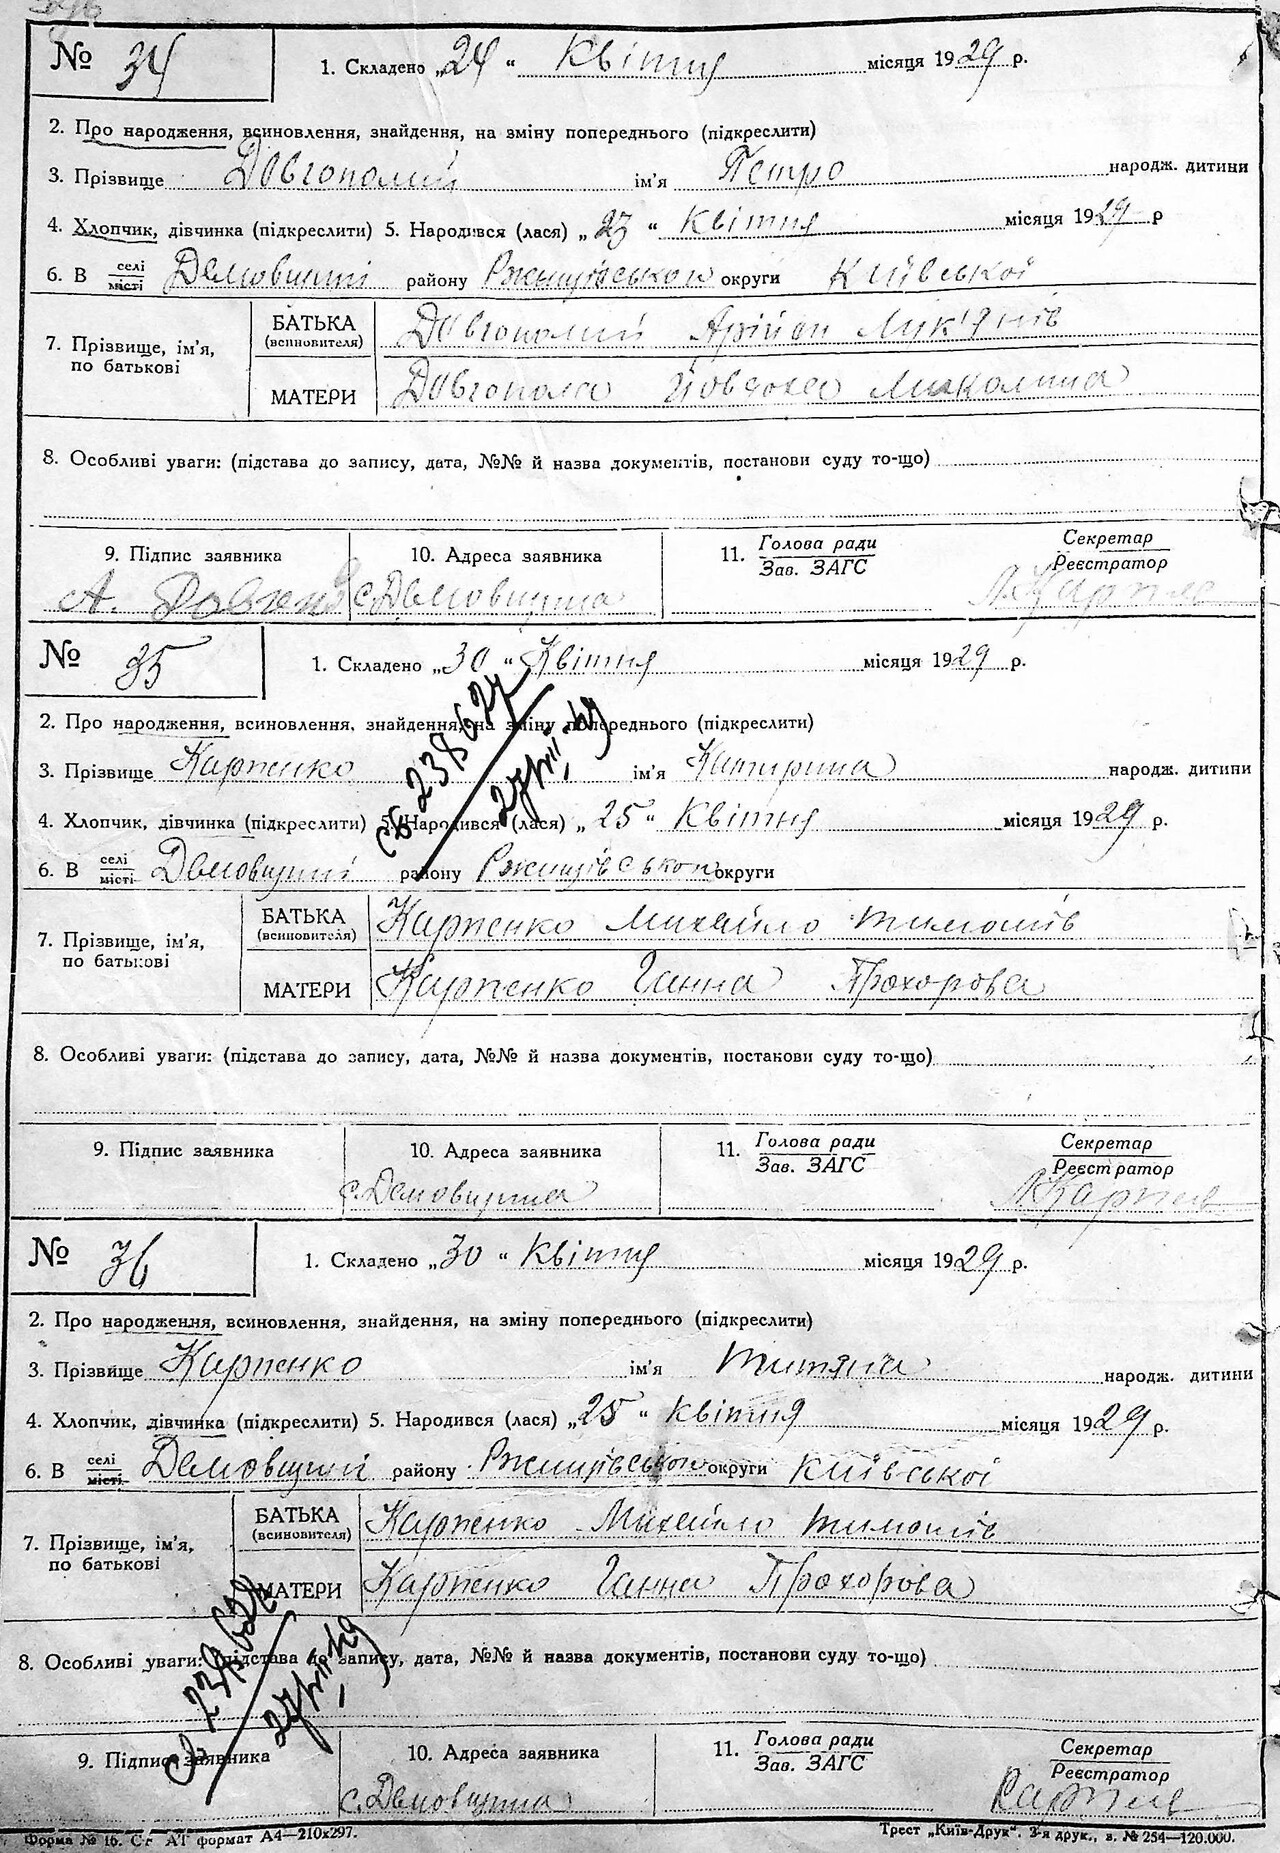 № 34 1. Складено „24“ Квітня місяця 1929 р.
2. Про народження, всиновлення, знайдення, на зміну попереднього (підкреслити)
3. Прізвище Довгополий ім'я Петро народж. дитини
4. Хлопчик, дівчинка (підкреслити) 5. Народився (лася) „23“ Квітня місяця 1929 р
6. В селі місті Демовщині району Ржищівському округи Київської
7. Прізвище, ім'я, по батькові
БАТЬКА (всиновителя) Довгополий Лук'янів
МАТЕРИ Довгопола Йовдоха Миколина
8. Особливі уваги: (підстава до запису, дата, №№ й назва документів, постанови суду то-що)
9. Підпис заявника 10. Адреса заявника 11. Голова ради Зав. ЗАГС Секретар Реєстратор
А. с. Демовщина
№ 35 1. Складено „30“ Квітня місяця 1929 р.
2. Про народження, всиновлення, знайдення, на зміну попереднього (підкреслити)
3. Прізвище Карпенко ім'я Катирина народж. дитини
4. Хлопчик, дівчинка (підкреслити) 5. Народився (лася) „25“ Квітня місяця 1929 р.
6. В селі місті Демовщині району Ржищівському округи
238627
7. Прізвище, ім'я, по батькові
БАТЬКА (всиновителя) Карпенко Михайло Тимошів
МАТЕРИ Карпенко Ганна Прохорова
8. Особливі уваги: (підстава до запису, дата, №№ й назва документів, постакови суду то-що)
9. Підпис заявника 10. Адреса заявника 11. Голова ради Зав. ЗАГС Секретар Реєстратор
с. Демовщина
№ 36 1. Складено „30“ Квітня місяця 1929 р.
2. Про народження, всиновлення, знайдення, на зміну попереднього (підкреслити)
3. Прізвище Карпенко ім'я Титяна народж. дитини
4. Хлопчик, дівчинка (підкреслити) 5. Народився (лася) „25“ Квітня місяця 1929 р.
6. В селі місті Демовщині району Ржищівському округи Київської
7. Прізвище, ім'я, по батькові
БАТЬКА (всиновителя) Карпенко Михайло Тимошів
МАТЕРИ Карпенко Ганна Прохорова
8. Особливі уваги: (підстава до запису, дата, №№ й назва документів, постанови суду то-що)
9. Підпис заявника 10. Адреса заявника 11. Голова ради Зав. ЗАГС Секретар Реєстратор
с. Демовщина
Форма № 16. формат А4—210х297. Трест „Київ-Друк“. 3-я друк., в. № 254—120.000.